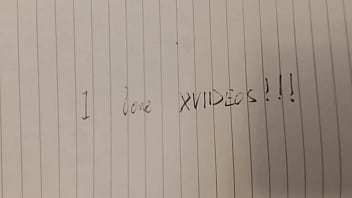 I love XVIIDEOS!!!